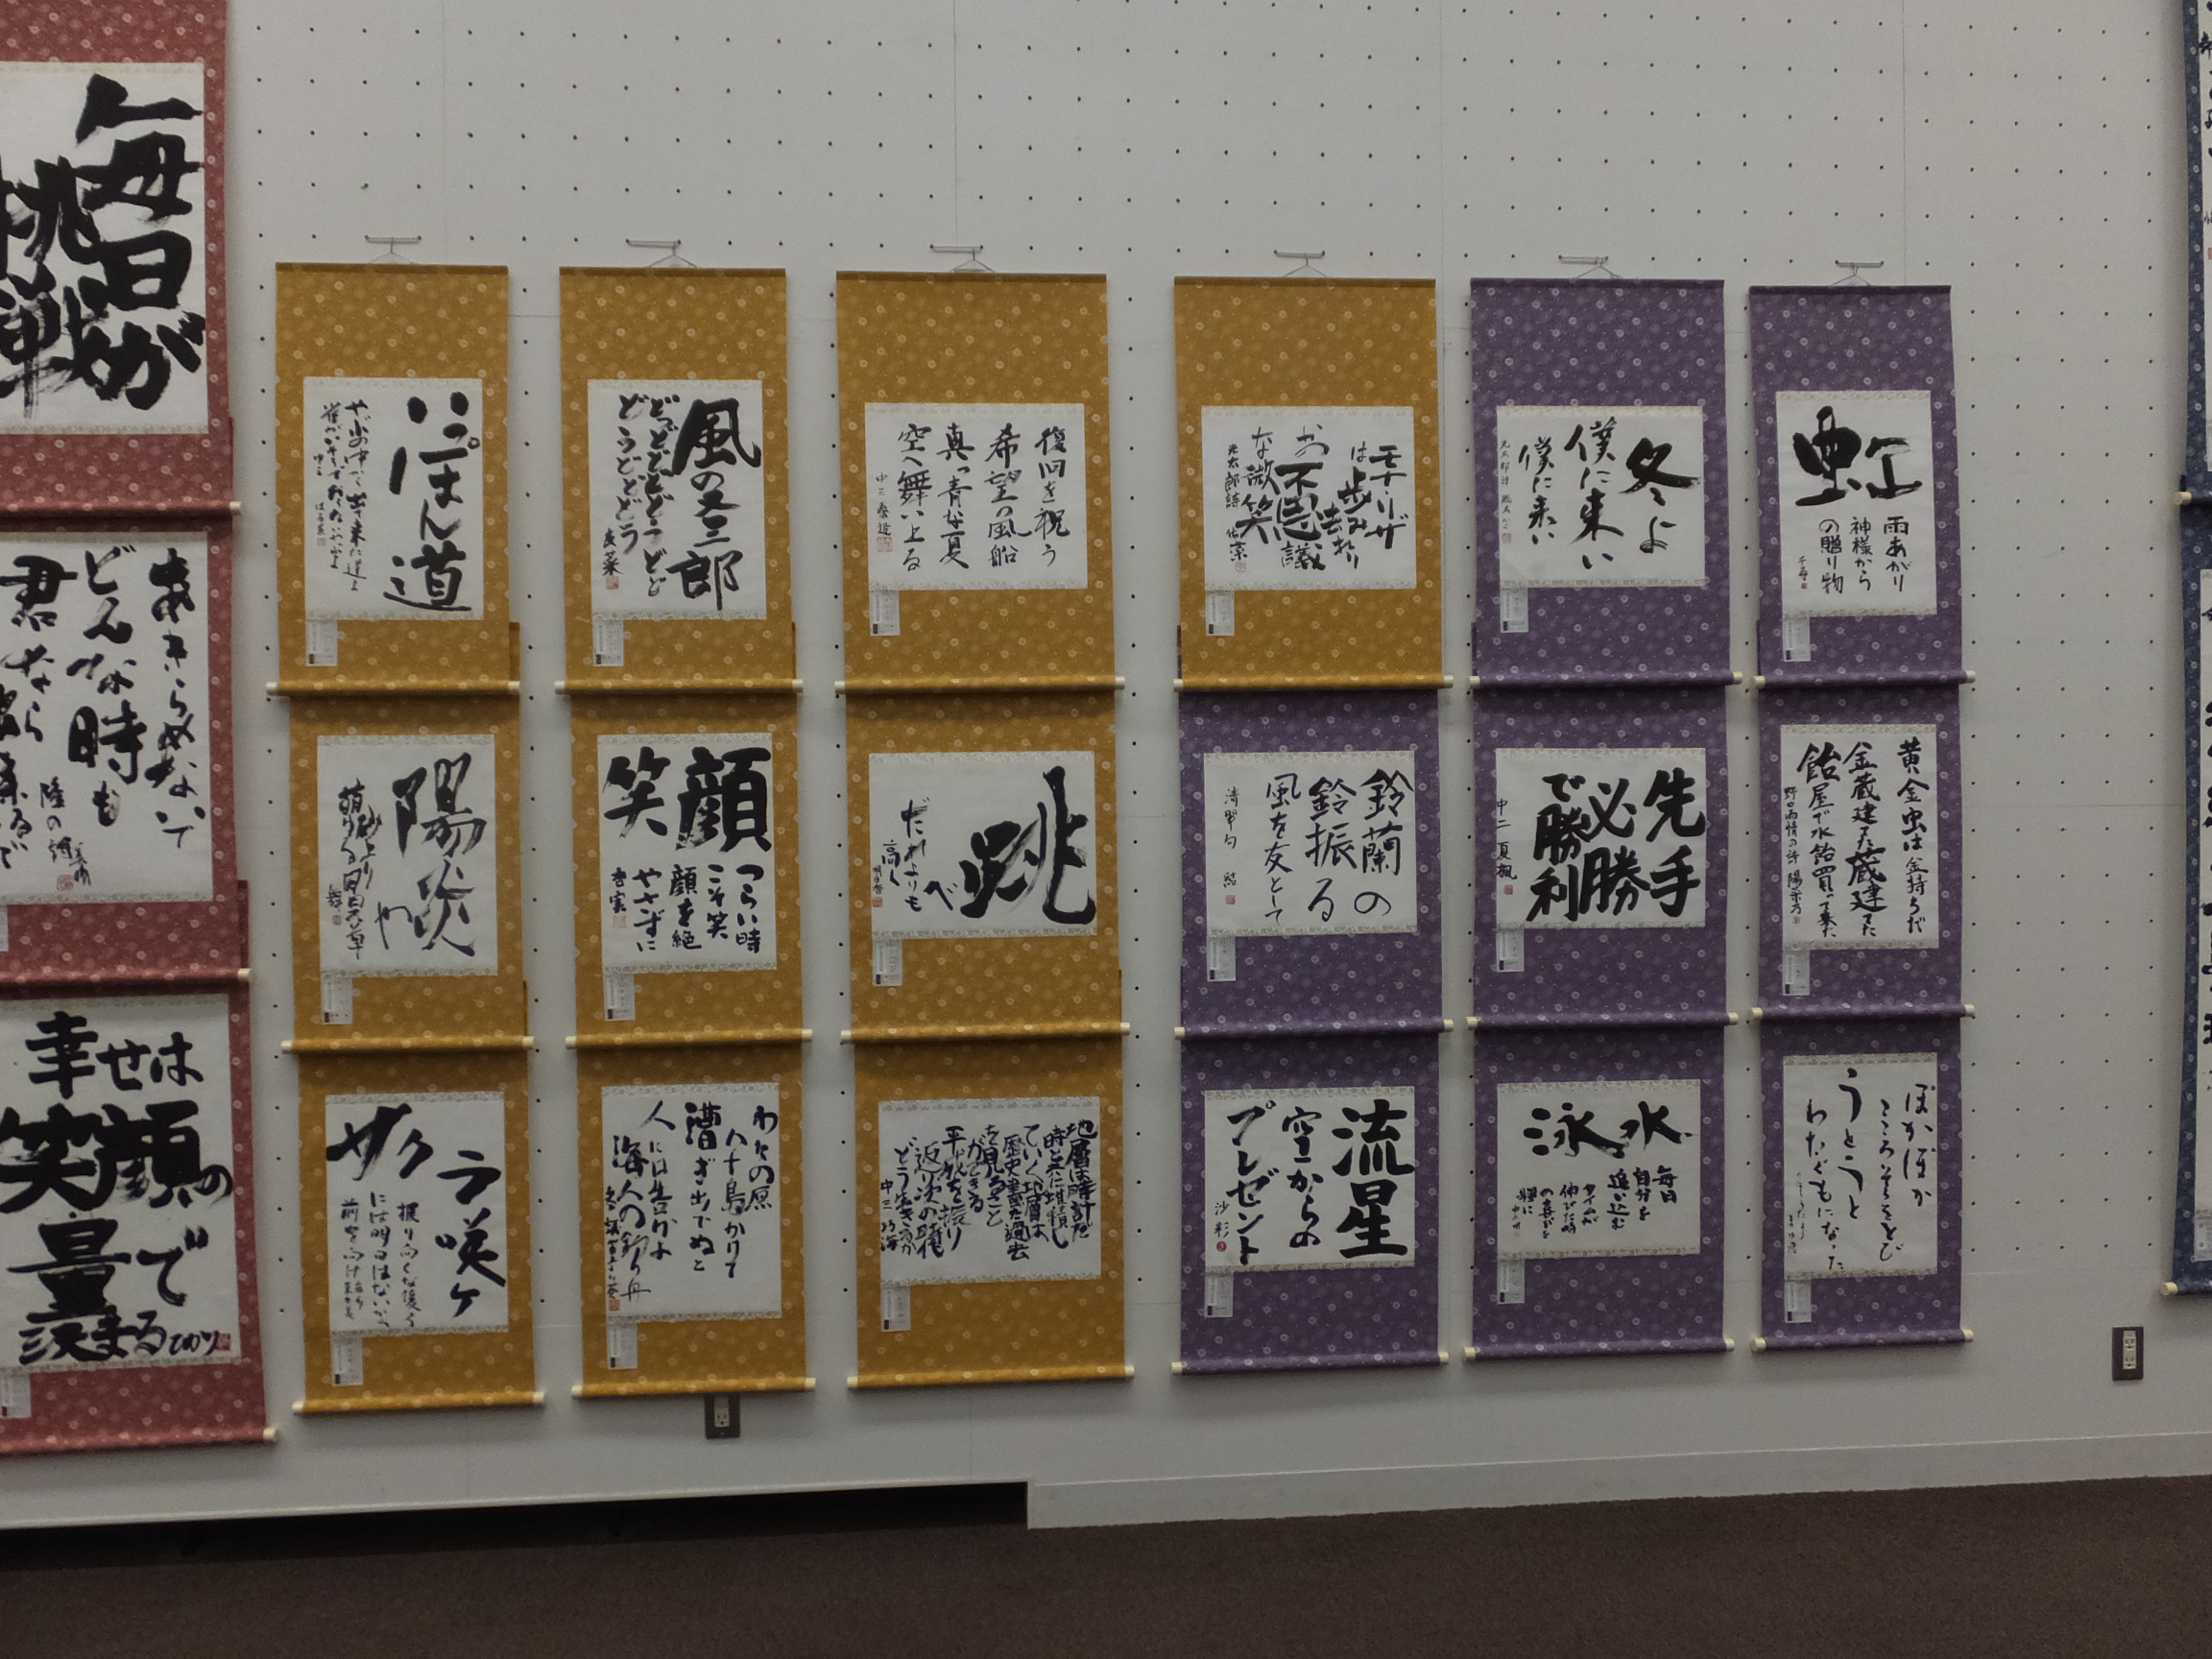 毎日が
挑戦
あきらめないで
どんな時も
君なら
幸せは
笑顔の
量で
決まる
いっぽん道
やぶの中で出て来た道よ
陽炎
や
サクラ咲ケ
振り向くな後ろ
には明日はないから
前を向け
風の又三郎
どっどどどどうどど
どうどどどう
笑顔
つらい時
こそ笑
顔を絶
やさずに
杏実
わたの原
八十島かけて
漕ぎ出でぬと
人には告げよ
海人の釣り舟
復旧を祝う
希望の風船
真っ青な夏
空へ舞い上る
跳べ
だれよりも
高く
地層は時計だ
時と共に堆積し
ていく地層は、
歴史書だ過去
を見ること
ができる
平成を振り
返り次の時代
どう生きるか
モナ・リザ
は歩み去れり
かの不思議
な微笑
光太郎詩
冬よ
僕に来い
僕に来い
光太郎詩
鈴蘭の
鈴振る
風を友として
清甲句
先手
必勝
で勝利
中二 夏楓
流星
空からの
プレゼント
沙彩
水泳
毎日
自分を
追い込む
タイムが
伸びた時
の喜びを
虹
雨あがり
神様から
の贈り物
千尋
黄金虫は金持ちだ
金蔵建てた蔵建てた
飴屋で水飴買って来た
野口雨情の詩 陽菜乃
ぽかぽか
こころもそらをとび
うとうと
わたぐもになった